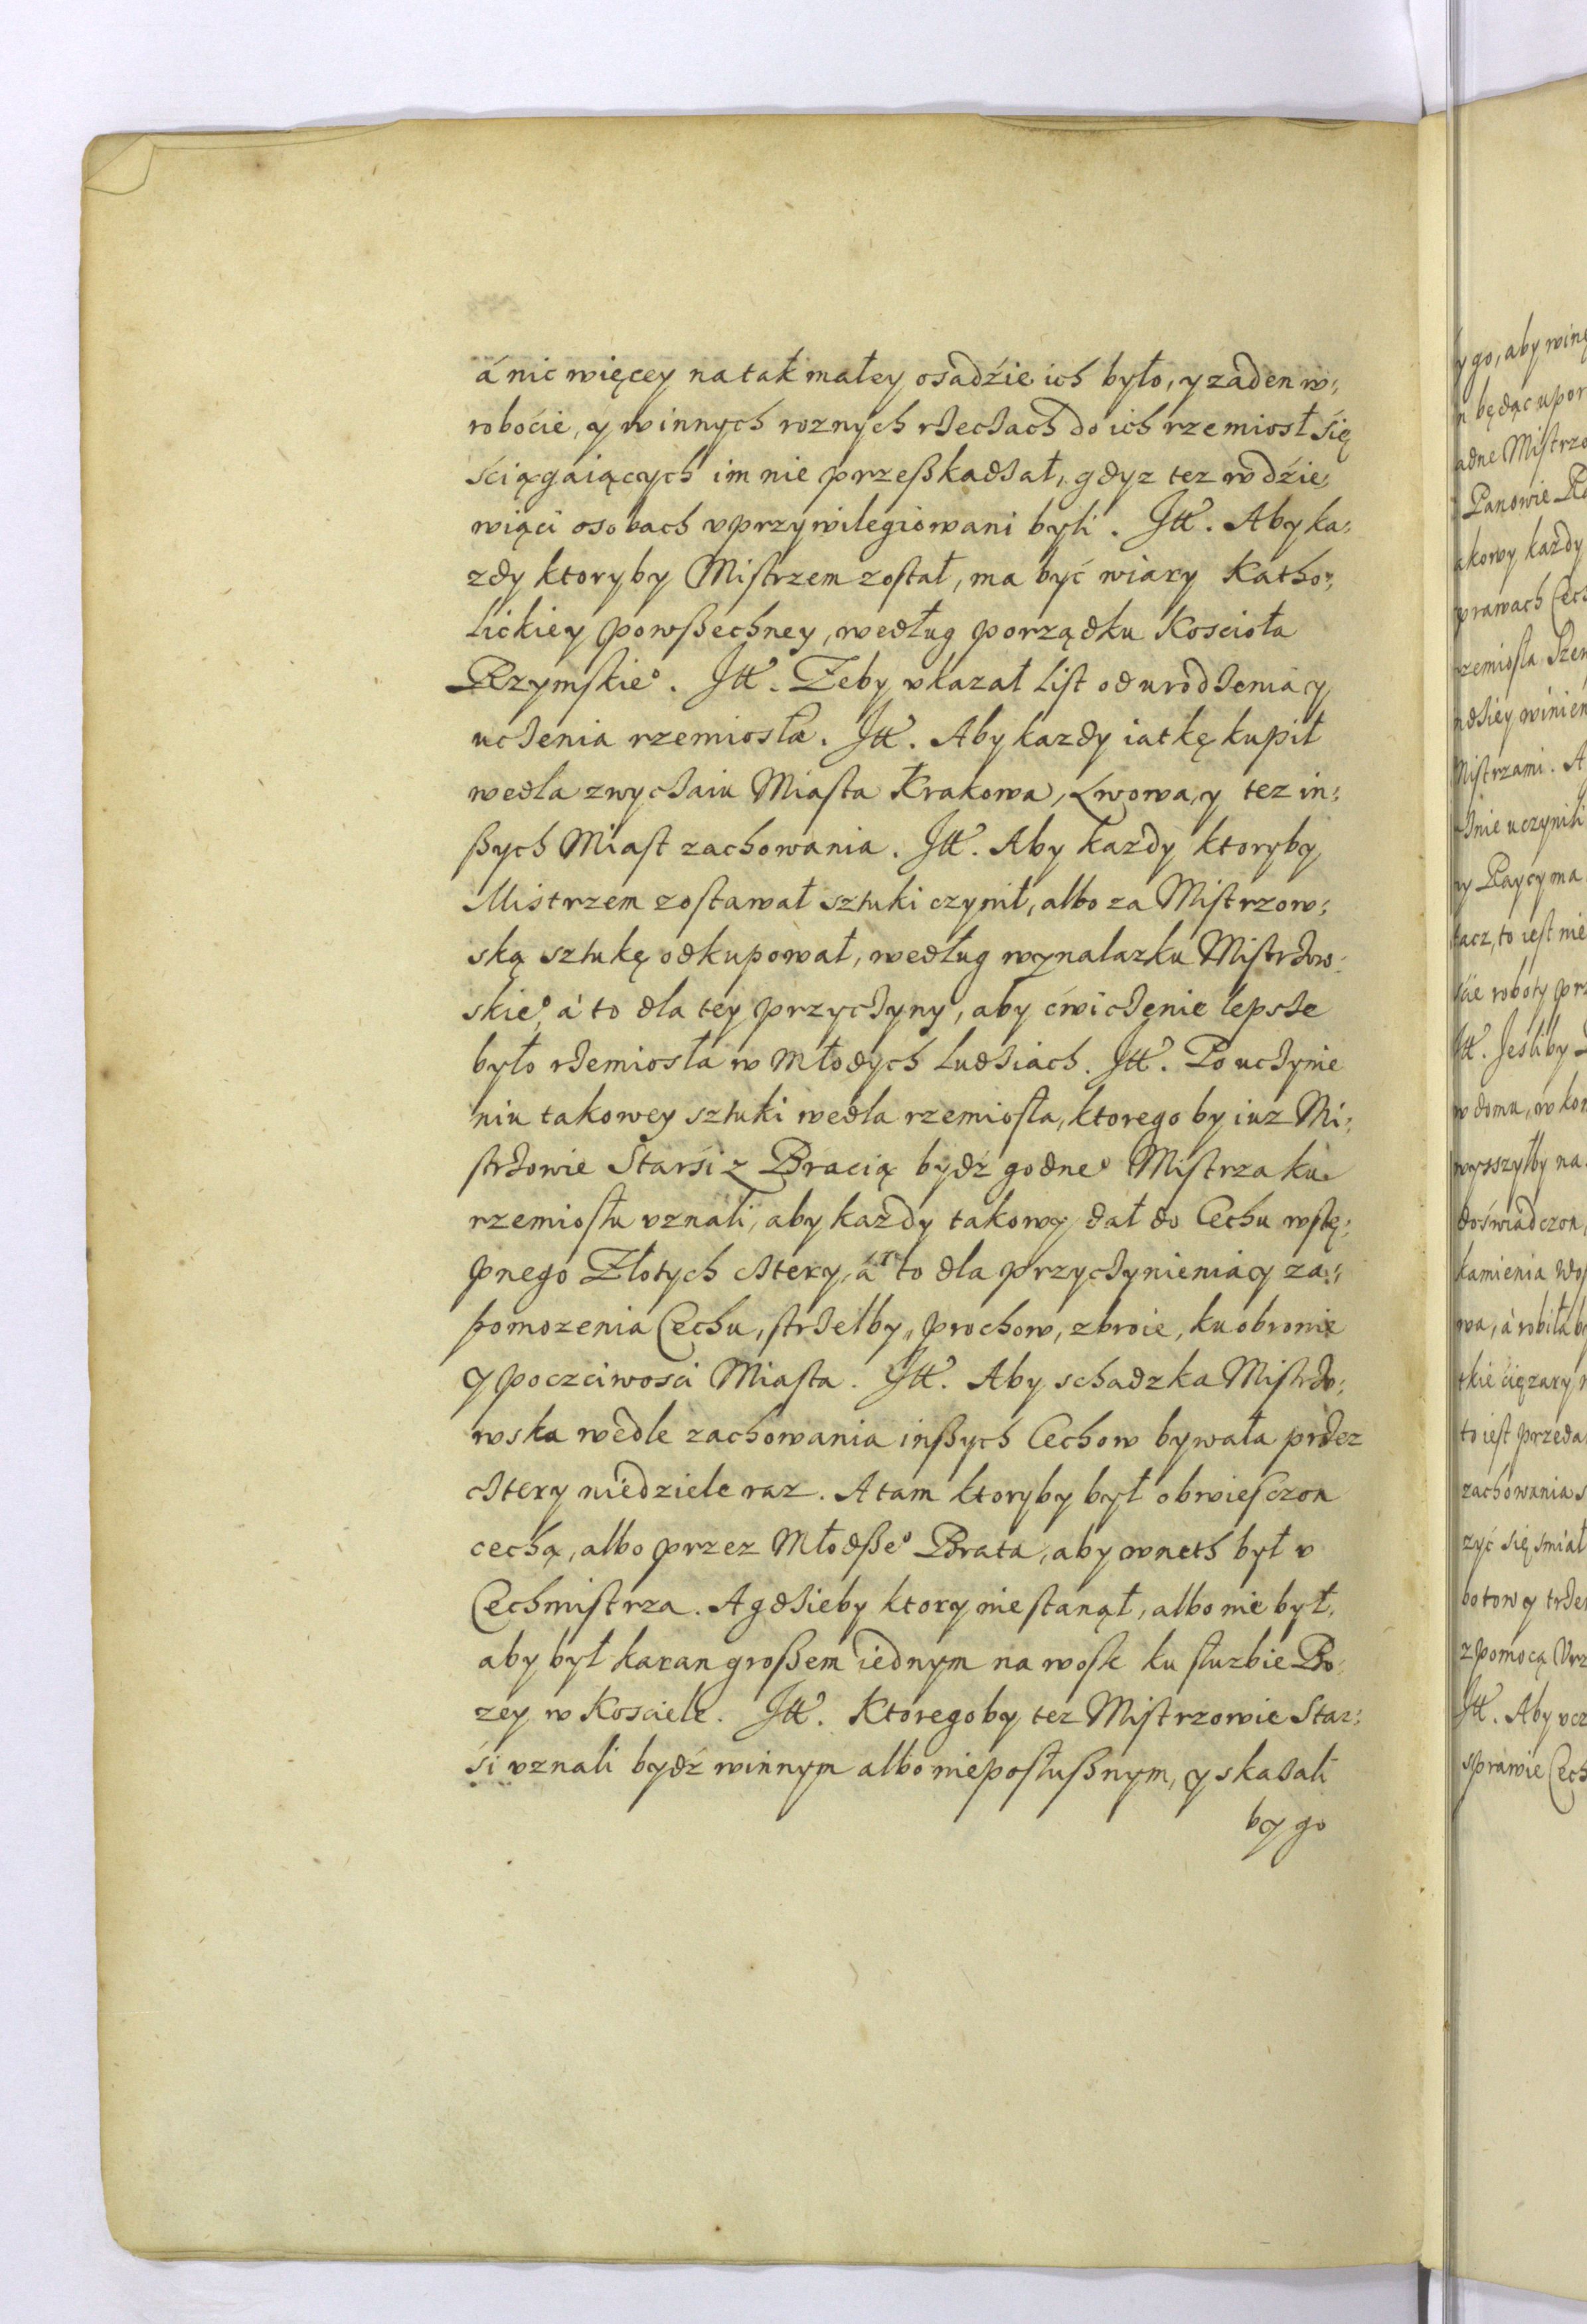 á nic więcey na tak małey osadźie ich było, y zaden w:
robocie, y w innych roznych rzeczach do ich rzemiosł się
ściągaiących im nie przeßkadzał, gdyz tez w dźie:
wiąci osobach vprzywilegiowani byli. Itt. Aby ka:
zdy ktoryby Mistrzem został, ma być wiary Katho:
lickiey powßechney, według porządku Koscioła
Rzymskie⁰. Itt. Zeby vkazał list od urodzenia y
uczenia rzemiosła. Itt. Aby kazdy iatkę kupił
wedla zwyczaiu Miasta Krakowa, Lwowa, y tez in:
ßych Miast zachowania. Itt. Aby kazdy ktoryby
Mistrzem zostawał sztuki czynił, albo za Mistrzow:
ską sztukę odkupował, według wynalazku Mistrzow:
skie⁰, á to dla tey przyczyny, aby ćwiczenie lepsze
było rzemiosła w młodych ludziach. Itt. Po uczynie
niu takowey sztuki wedla rzemiosła, ktorego by iuz Mi:
strzowie Starśi z Bracią bydź godne⁰ Mistrza ku
rzemiosłu vznali, aby kazdy takowy dał do Cechu wstę:
pnego Złotych cztery, á to dla przyczynienia y za:
pomozenia Cechu, strzelby, prochow, zbroie, ku obronie
y poczciwosci Miasta. Itt. Aby schadzka Mistrzo:
wska wedle zachowania inßych Cechow bywała przez
cztery niedziele raz. A tam ktoryby był obwiesczon
cechą, albo przez Młodße⁰ Brata, aby wneth był v
Cechmistrza. A gdzieby ktory nie stanął, albo nie był,
aby był karan großem iednym na wosk ku słuzbie Bo:
zey w Kosciele. Itt. Ktoregoby tez Mistrzowie Star:
śi vznali bydź winnym albo nieposłußnym, y skazali
by go
y go, aby winę
będąc upor
adne Mistrzo
Panowie
akowy kazdy
prawach Cech
rzemiosła
winien
Mistrzami. A
uczynili
Raycy ma
to iest nie
roboty prz
Itt. Jesliby
w domu, w
na
doswiadczon
kamienia
á robiła
tkie cięzary
to iest przeda
zachowania
zyć się smiał
z pomocą Vrz
Itt. Aby vcz
sprawie Cech